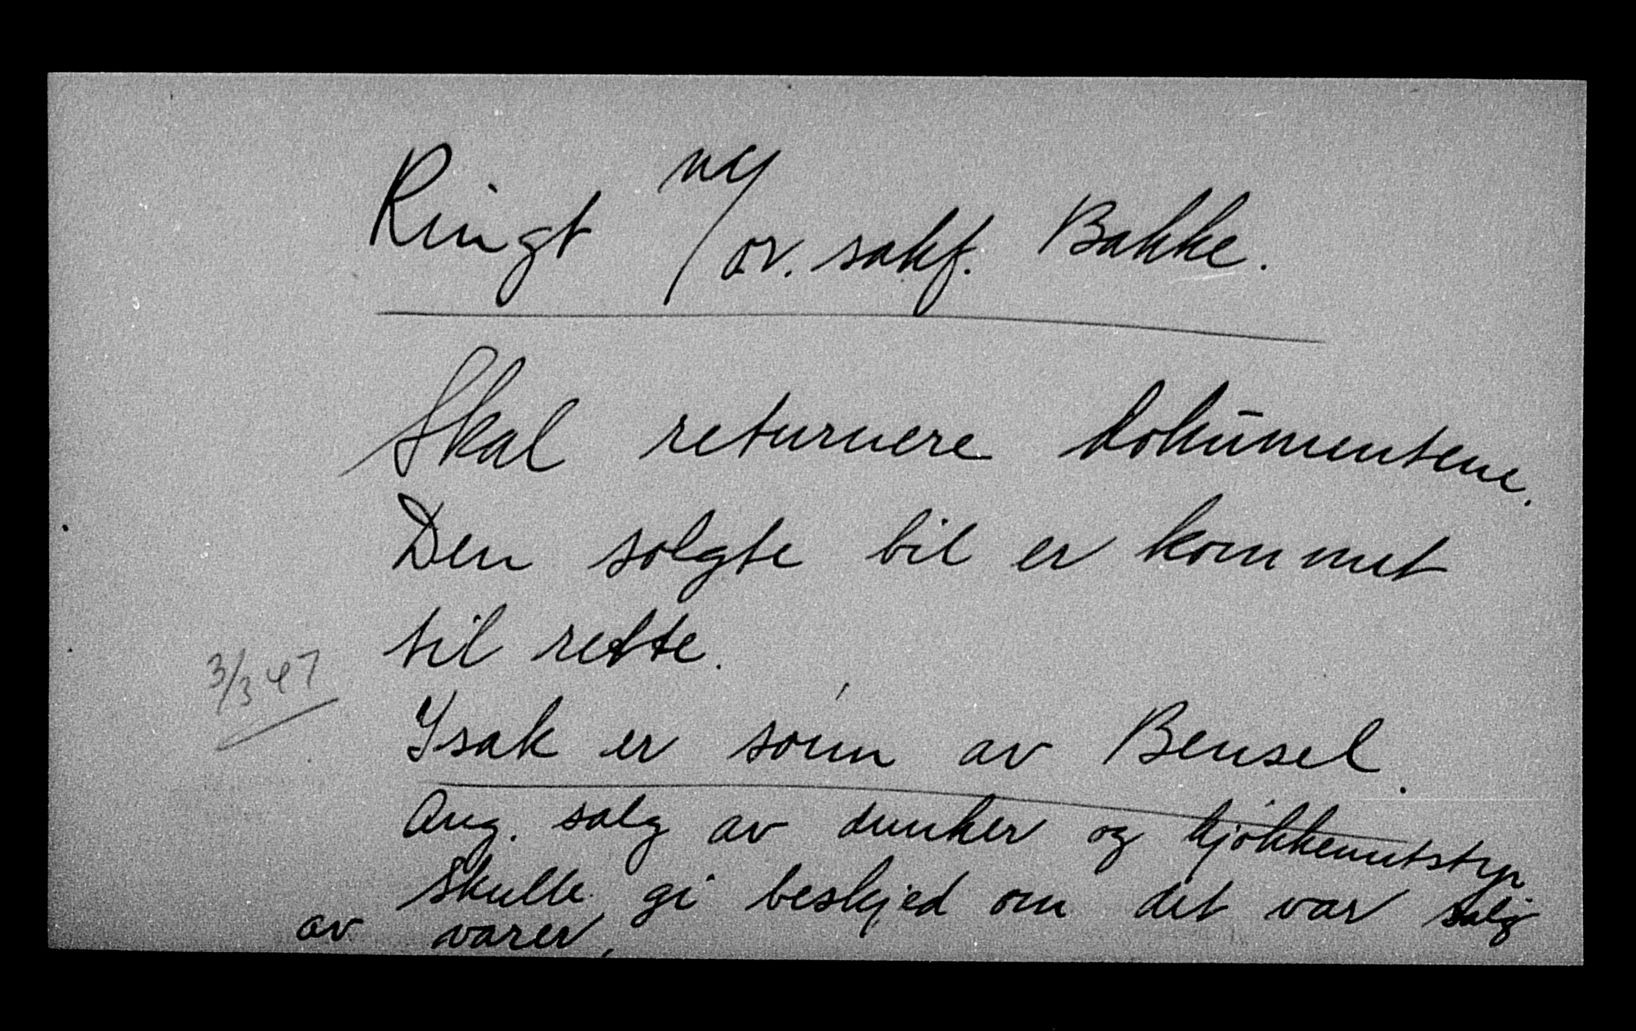 Ringt m/or. sakf. Bakke.
Skal returnere dokumentene.
Den solgte bil er kommet
til rette.
3/3 47
Isak er sønn av Bensel.
Ang. salg av dunker og kjøkkenutstyr
skulle gi beskjed om det var salg
av varer.